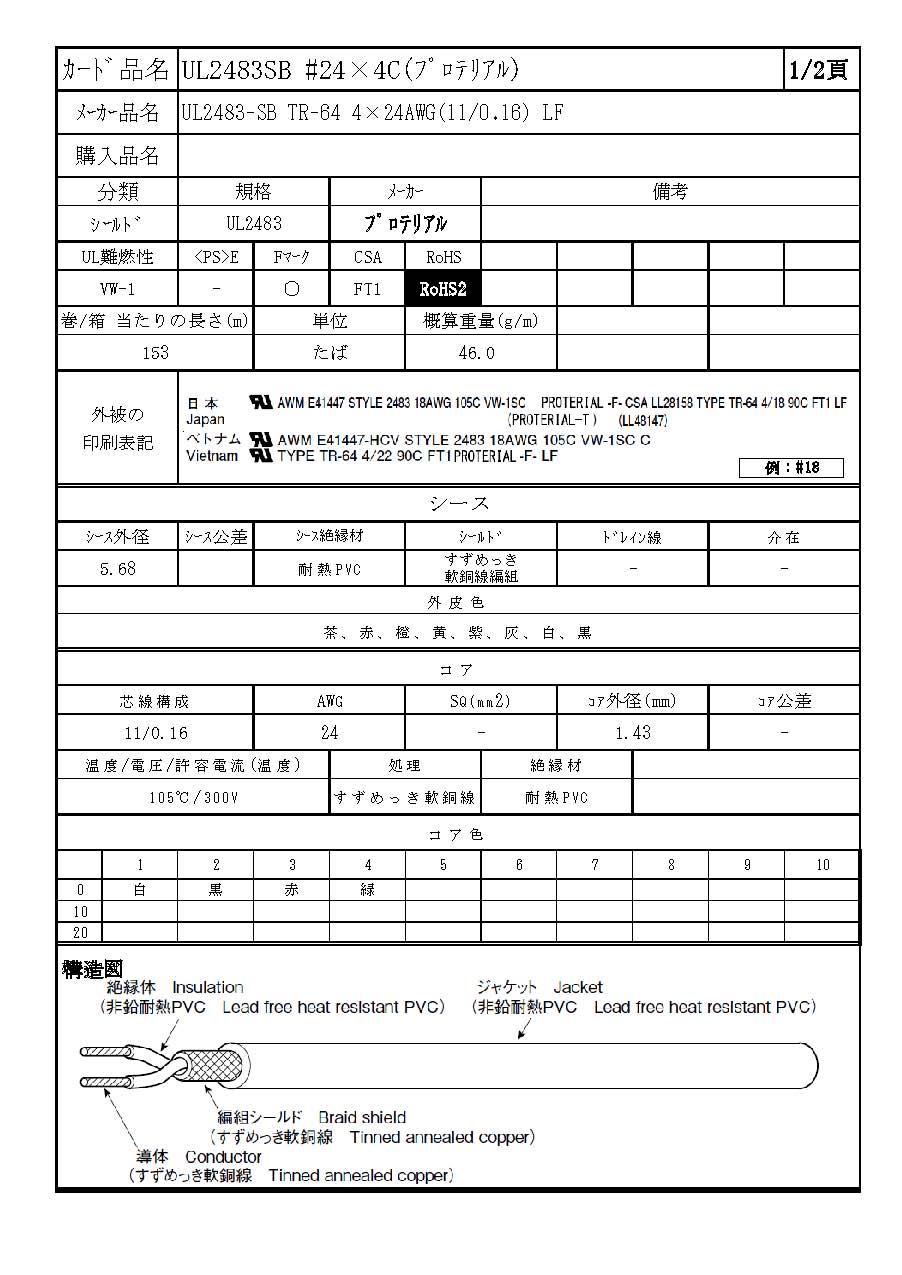 ｶｰﾄﾞ品名 UL2483SB #24×4C(ﾌﾟﾛﾃﾘｱﾙ) 1/2頁
ﾒｰｶｰ品名 UL2483-SB TR-64 4×24AWG(11/0.16) LF
購入品名
分類 規格 ﾒｰｶｰ 備考
ｼｰﾙﾄﾞ UL2483 ﾌﾟﾛﾃﾘｱﾙ
UL難燃性 <PS>E Fﾏｰｸ CSA RoHS
VW-1 - ○ FT1 RoHS2
巻/箱 当たりの長さ(m) 単位 概算重量(g/m)
153 たば 46.0
外被の
印刷表記
日本 AWM E41447 STYLE 2483 18AWG 105C VW-1SC PROTERIAL -F- CSA LL28158 TYPE TR-64 4/18 90C FT1 LF
Japan (PROTERIAL-T) (LL48147)
ベトナム AWM E41447-HCV STYLE 2483 18AWG 105C VW-1SC C
Vietnam TYPE TR-64 4/22 90C FT1 PROTERIAL -F- LF
例：#18
シース
ｼｰｽ外径 ｼｰｽ公差 ｼｰｽ絶縁材 ｼｰﾙﾄﾞ ﾄﾞﾚｲﾝ線 介在
5.68 耐熱PVC すずめっき
軟銅線編組 - -
外皮色
茶、赤、橙、黄、紫、灰、白、黒
コア
芯線構成 AWG SQ(mm2) ｺｱ外径(mm) ｺｱ公差
11/0.16 24 - 1.43 -
温度/電圧/許容電流(温度) 処理 絶縁材
105℃/300V すずめっき軟銅線 耐熱PVC
コア色
1 2 3 4 5 6 7 8 9 10
0 白 黒 赤 緑
10
20
構造図
絶縁体 Insulation
（非鉛耐熱PVC Lead free heat resistant PVC）
ジャケット Jacket
（非鉛耐熱PVC Lead free heat resistant PVC）
編組シールド Braid shield
（すずめっき軟銅線 Tinned annealed copper）
導体 Conductor
（すずめっき軟銅線 Tinned annealed copper）